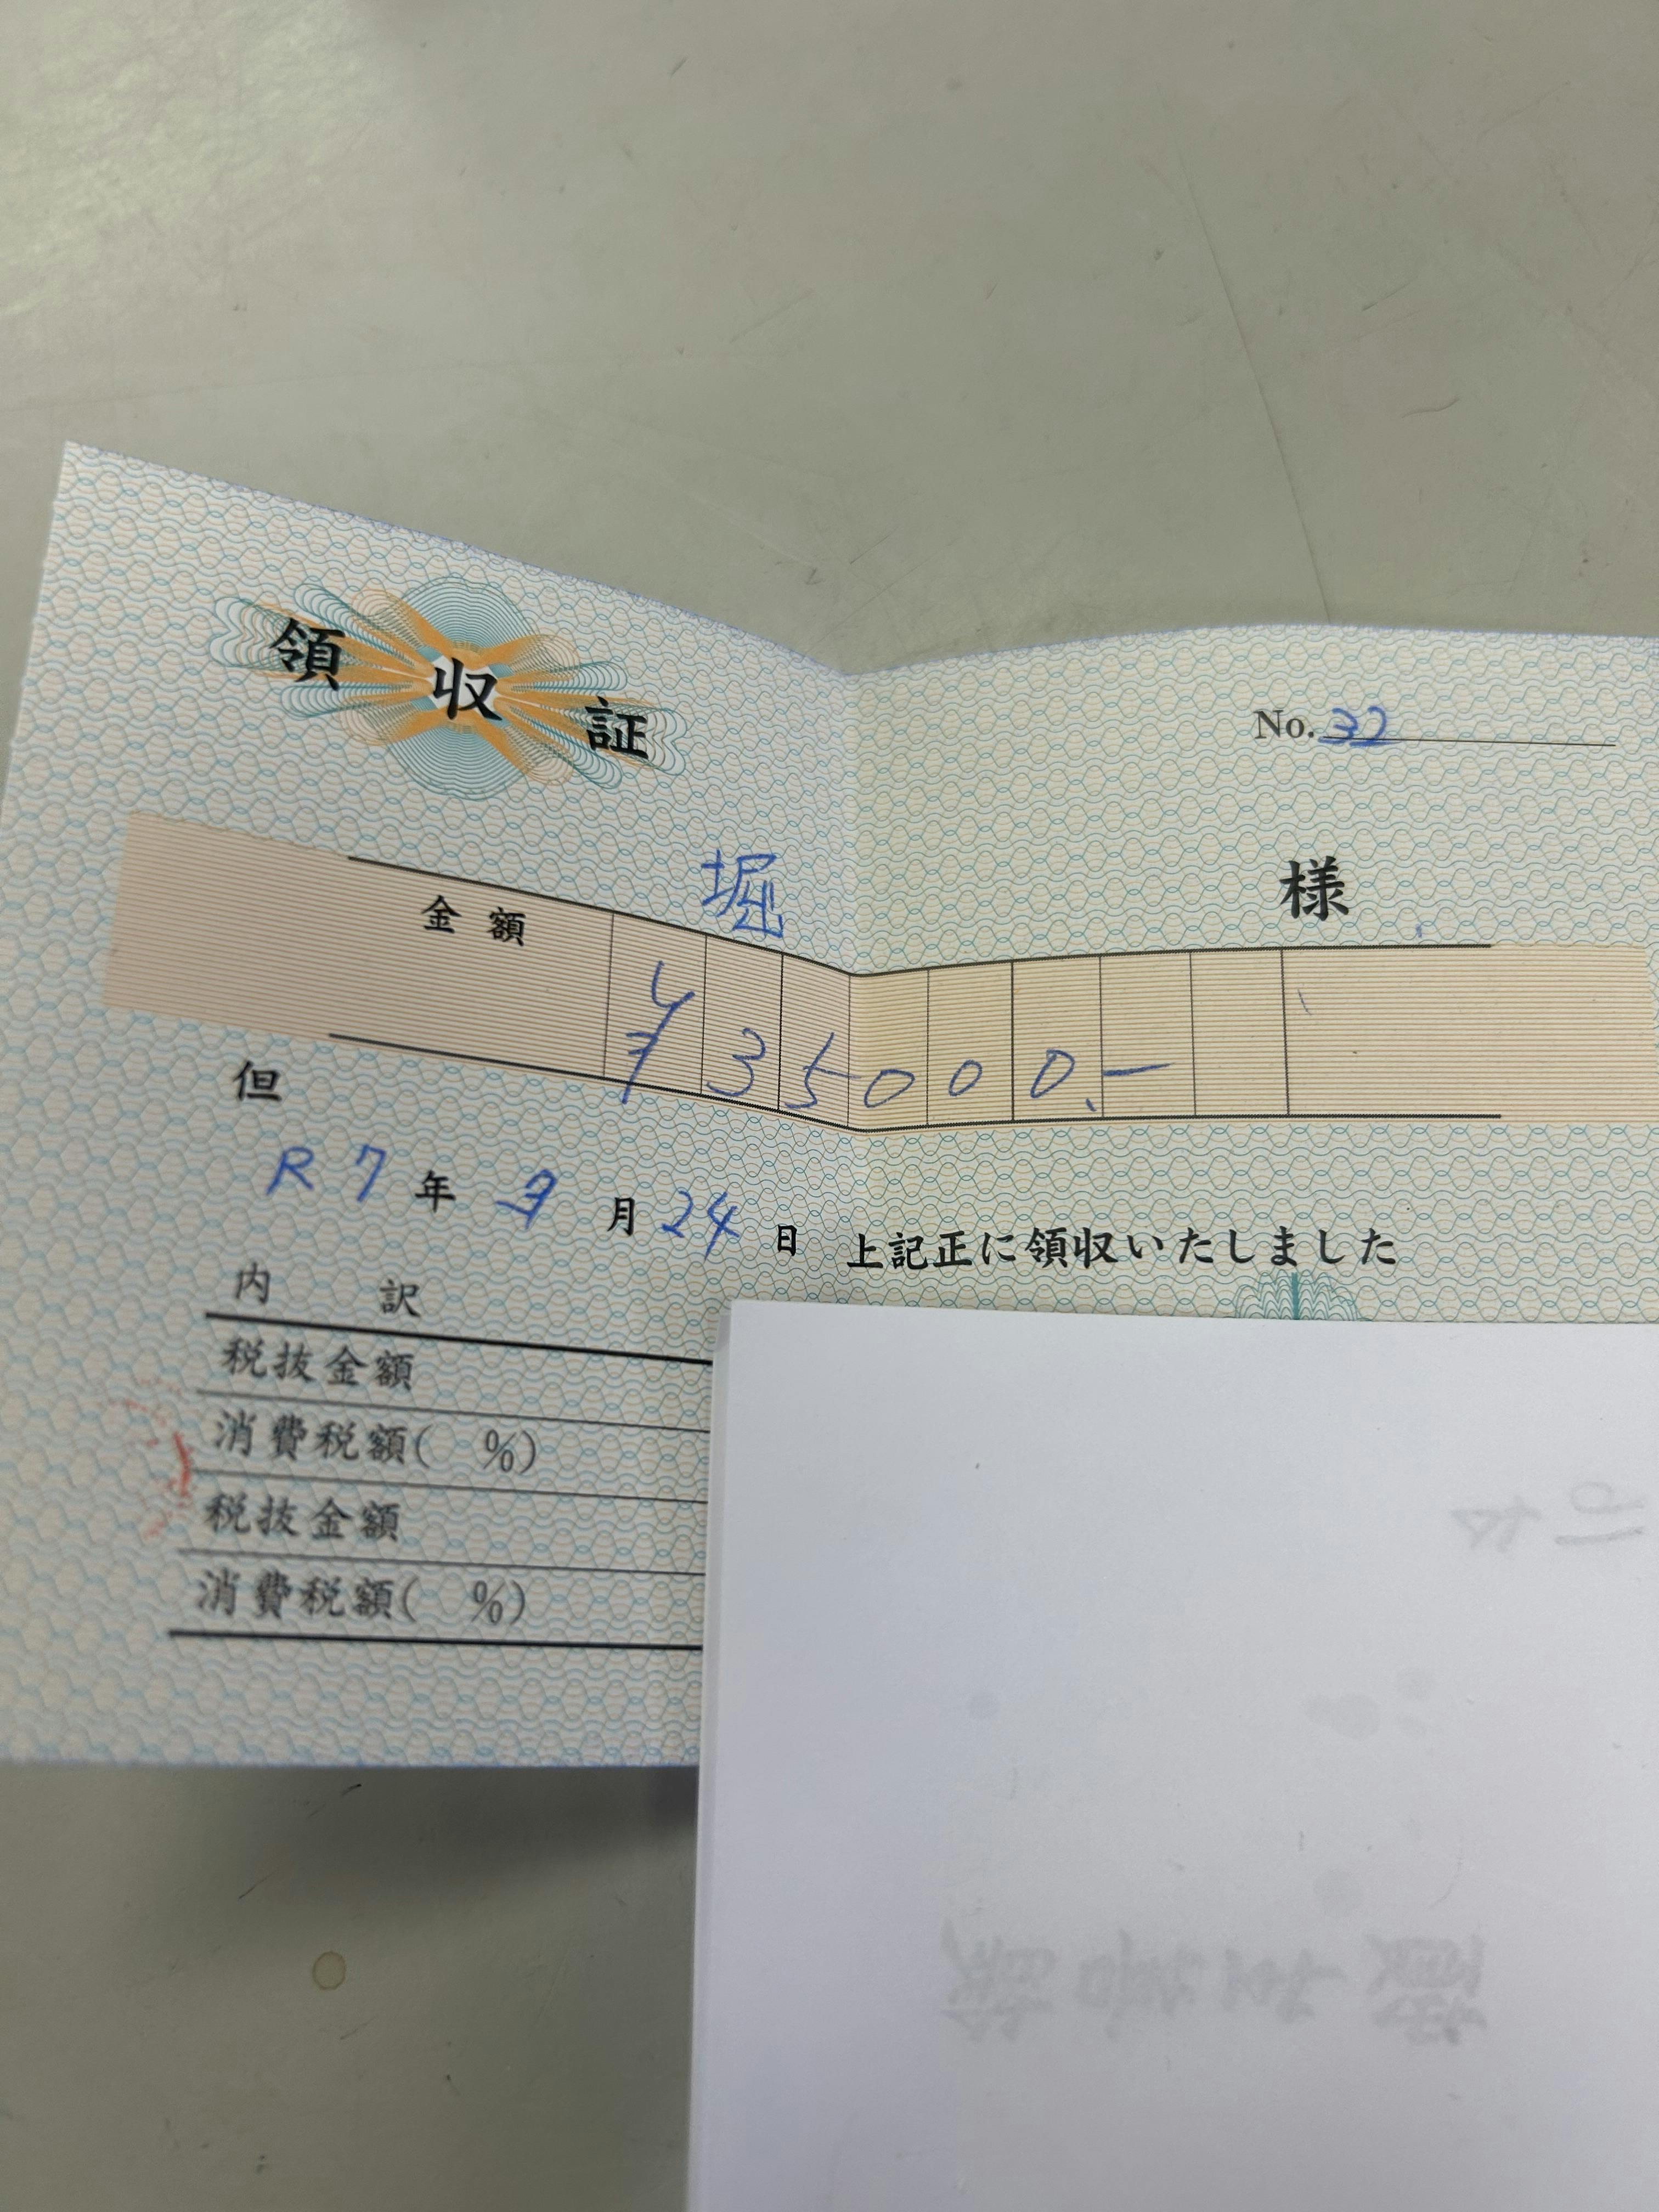 領収証
No. 32
堀 様
金額 ¥35000.-
但
R7年 月24日 上記正に領収いたしました
内訳
税抜金額
消費税額( %)
税抜金額
消費税額( %)